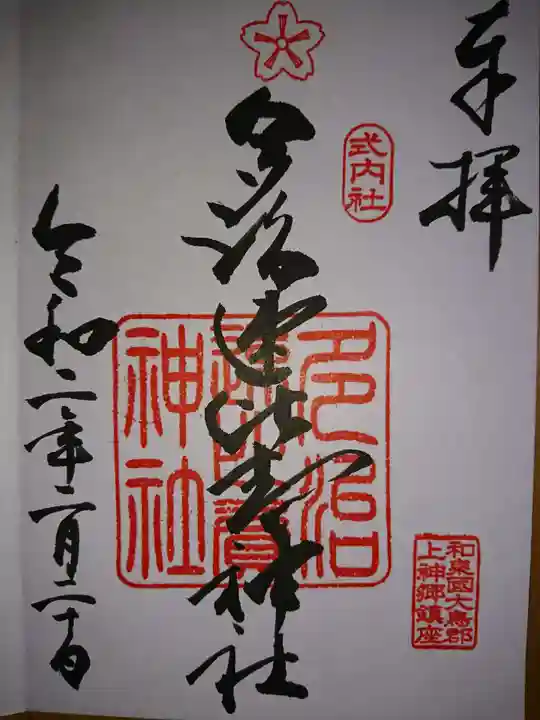 奉拝
式内社
多治速比売神社
多治
速比賣
神社
和泉国大鳥郡
上神郷鎮座
令和二年二月二十日